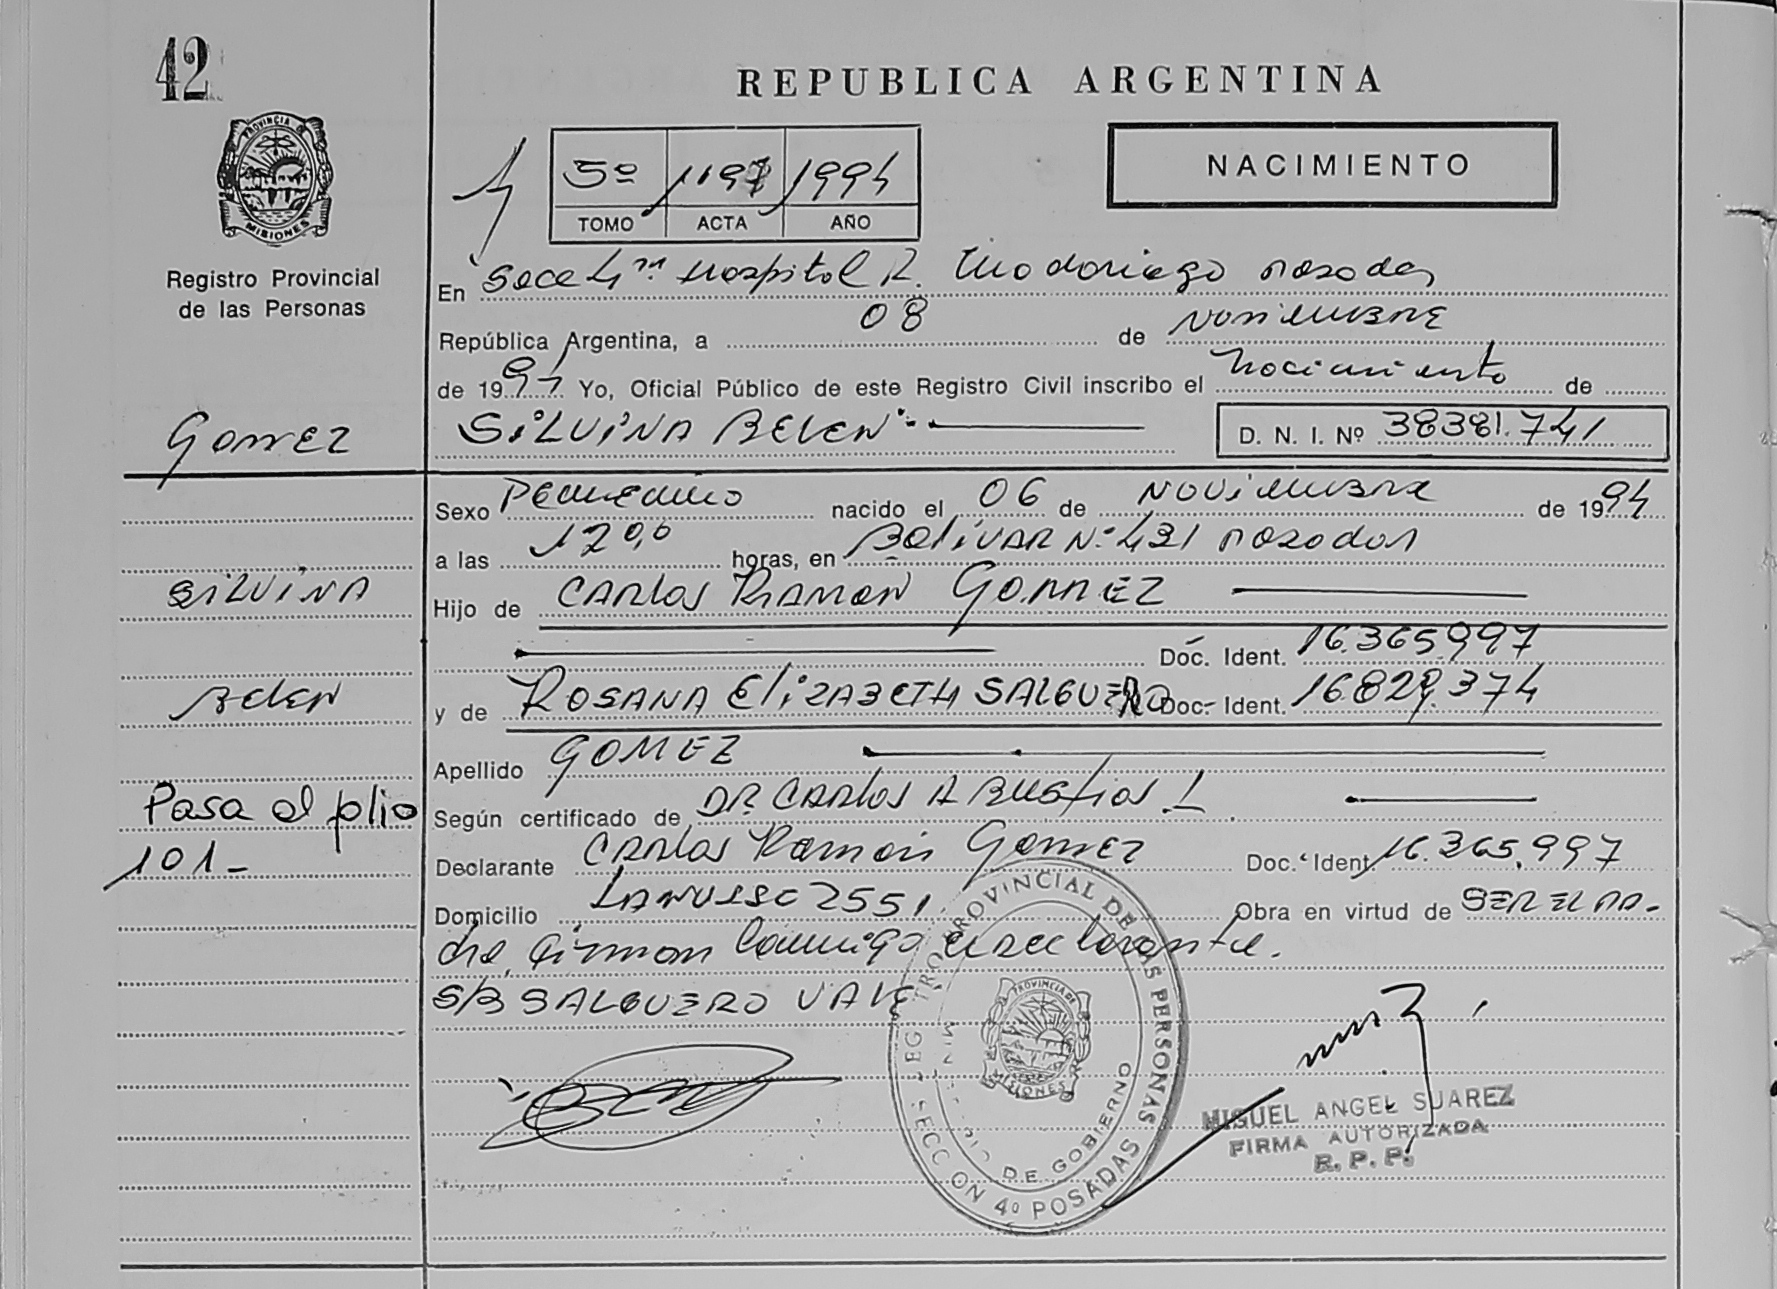 42
REPUBLICA ARGENTINA
PROVINCIA DE
MISIONES
Registro Provincial
de las Personas
5º 1197 1994
TOMO ACTA AÑO
NACIMIENTO
En Secc 4ta Hospital R. Madariaga Posadas
República Argentina, a 08 de Noviembre
de 1994 Yo, Oficial Público de este Registro Civil inscribo el Nacimiento de
GOMEZ
SILVINA BELEN
D. N. I. Nº 38381.741
Sexo Femenino nacido el 06 de NOVIEMBRE de 1994
a las horas, en BOLIVAR Nº 431 Posadas
SILVINA
Hijo de CARLOS RAMON GOMEZ
Doc. Ident. 16.365.997
BELEN
y de ROSANA ELIZABETH SALGUERO Doc. Ident. 16.829.374
Apellido GOMEZ
Pasa al folio
101-
Según certificado de DR. CARLOS A
Declarante CARLOS Ramon Gomez Doc. Ident. 16.365.997
Domicilio 2551 Obra en virtud de SER EL PA-
dre, Firman Conmigo el Declarante.
S/B SALGUERO VALE
REGISTRO PROVINCIAL DE LAS PERSONAS
MINISTERIO DE GOBIERNO
PROVINCIA DE
MISIONES
SECCION 4º POSADAS
MIGUEL ANGEL SUAREZ
FIRMA AUTORIZADA
R. P. P.